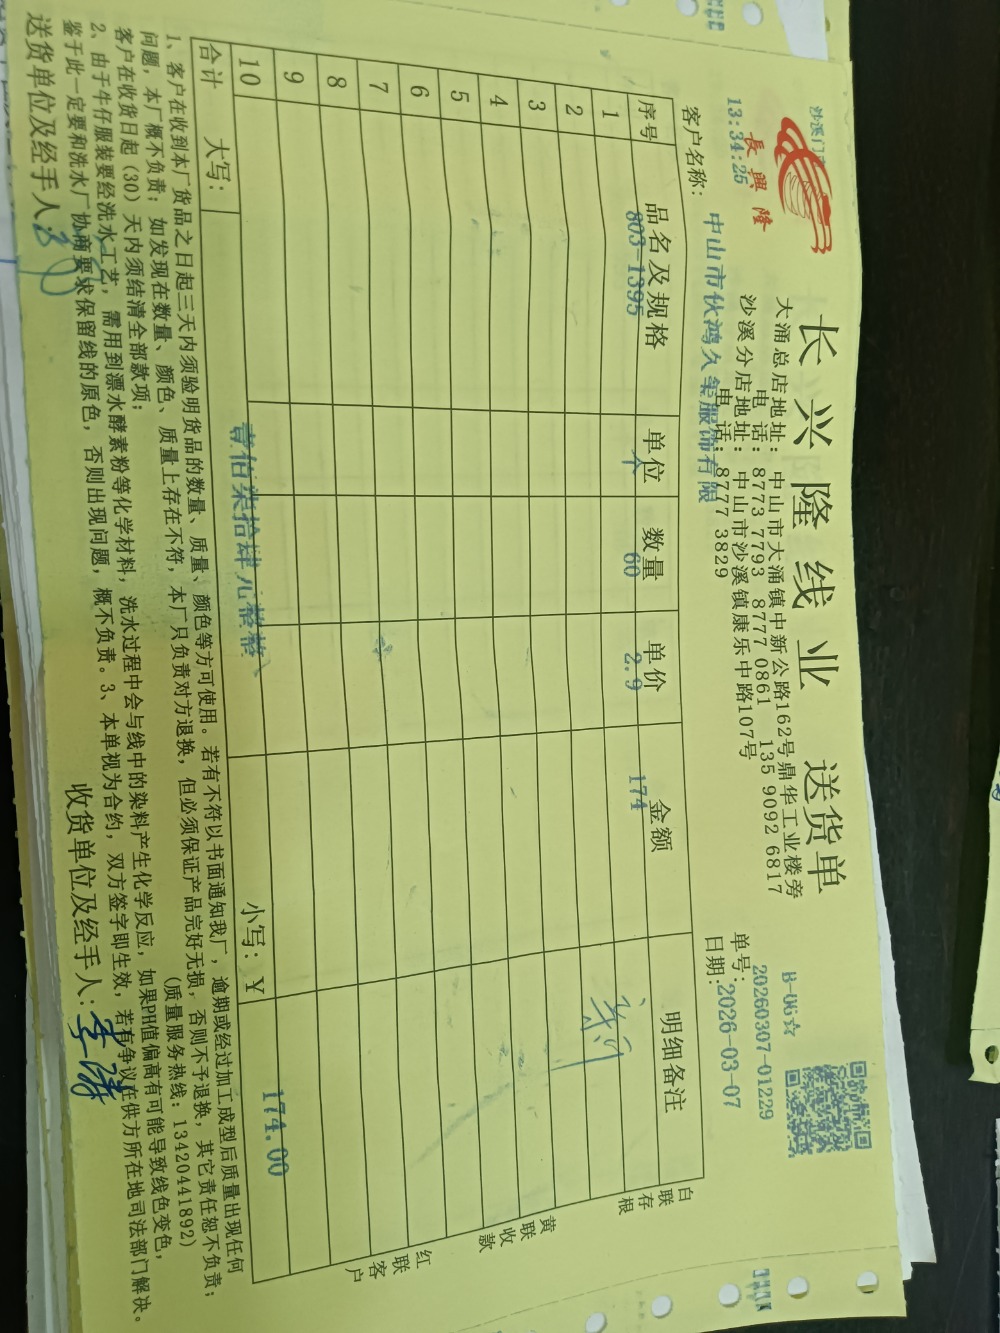 沙溪门
13:34:25
長興隆
长兴隆线业 送货单
大涌总店地址: 中山市大涌镇中新公路162号鼎华工业楼旁
电 话: 8773 7793 8777 0861 135 9092 6817
沙溪分店地址: 中山市沙溪镇康乐中路107号
电 话: 8777 3829
B-06☆
单号: 20260307-01229
日期: 2026-03-07
客户名称: 中山市伙鸿久集服饰有限
序号 品名及规格 单位 数量 单价 金额 明细备注
1 803-1395 个 60 2.9 174
2
3
4
5
6
7
8
9
10
合计 大写: 壹佰柒拾肆元整整 小写: ¥ 174.00
白联存根
黄联收款
红联客户
1、客户在收到本厂货品之日起三天内须验明货品的数量、质量、颜色等方可使用。若有不符以书面通知我厂,逾期或经过加工成型后质量出现任何
问题,本厂概不负责;如发现在数量、颜色、质量上存在不符,本厂只负责对方退换,但必须保证产品完好无损,否则不予退换,其它责任恕不负责;
客户在收货日起(30)天内须结清全部款项; (质量服务热线: 13420441892)
2、由于牛仔服装要经洗水工艺,需用到漂水酵素粉等化学材料,洗水过程中会与线中的染料产生化学反应,如果PH值偏高有可能导致线色变色,
鉴于此一定要和洗水厂协商要求保留线的原色,否则出现问题,概不负责。3、本单视为合约,双方签字即生效,若有争议在供方所在地司法部门解决。
送货单位及经手人: 收货单位及经手人: